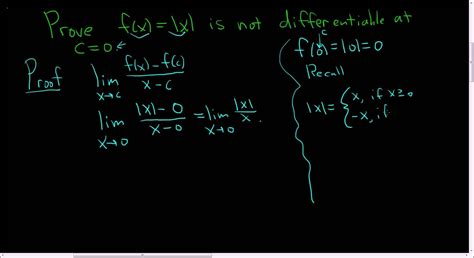 Prove f(x) = |x| is not differentiable at
c = 0
Proof
lim x→c (f(x) - f(c))/(x - c)
lim x→0 (|x| - 0)/(x - 0) = lim x→0 |x|/x.
c
f(0) = |0| = 0
Recall
|x| = { x, if x ≥ 0
-x, if